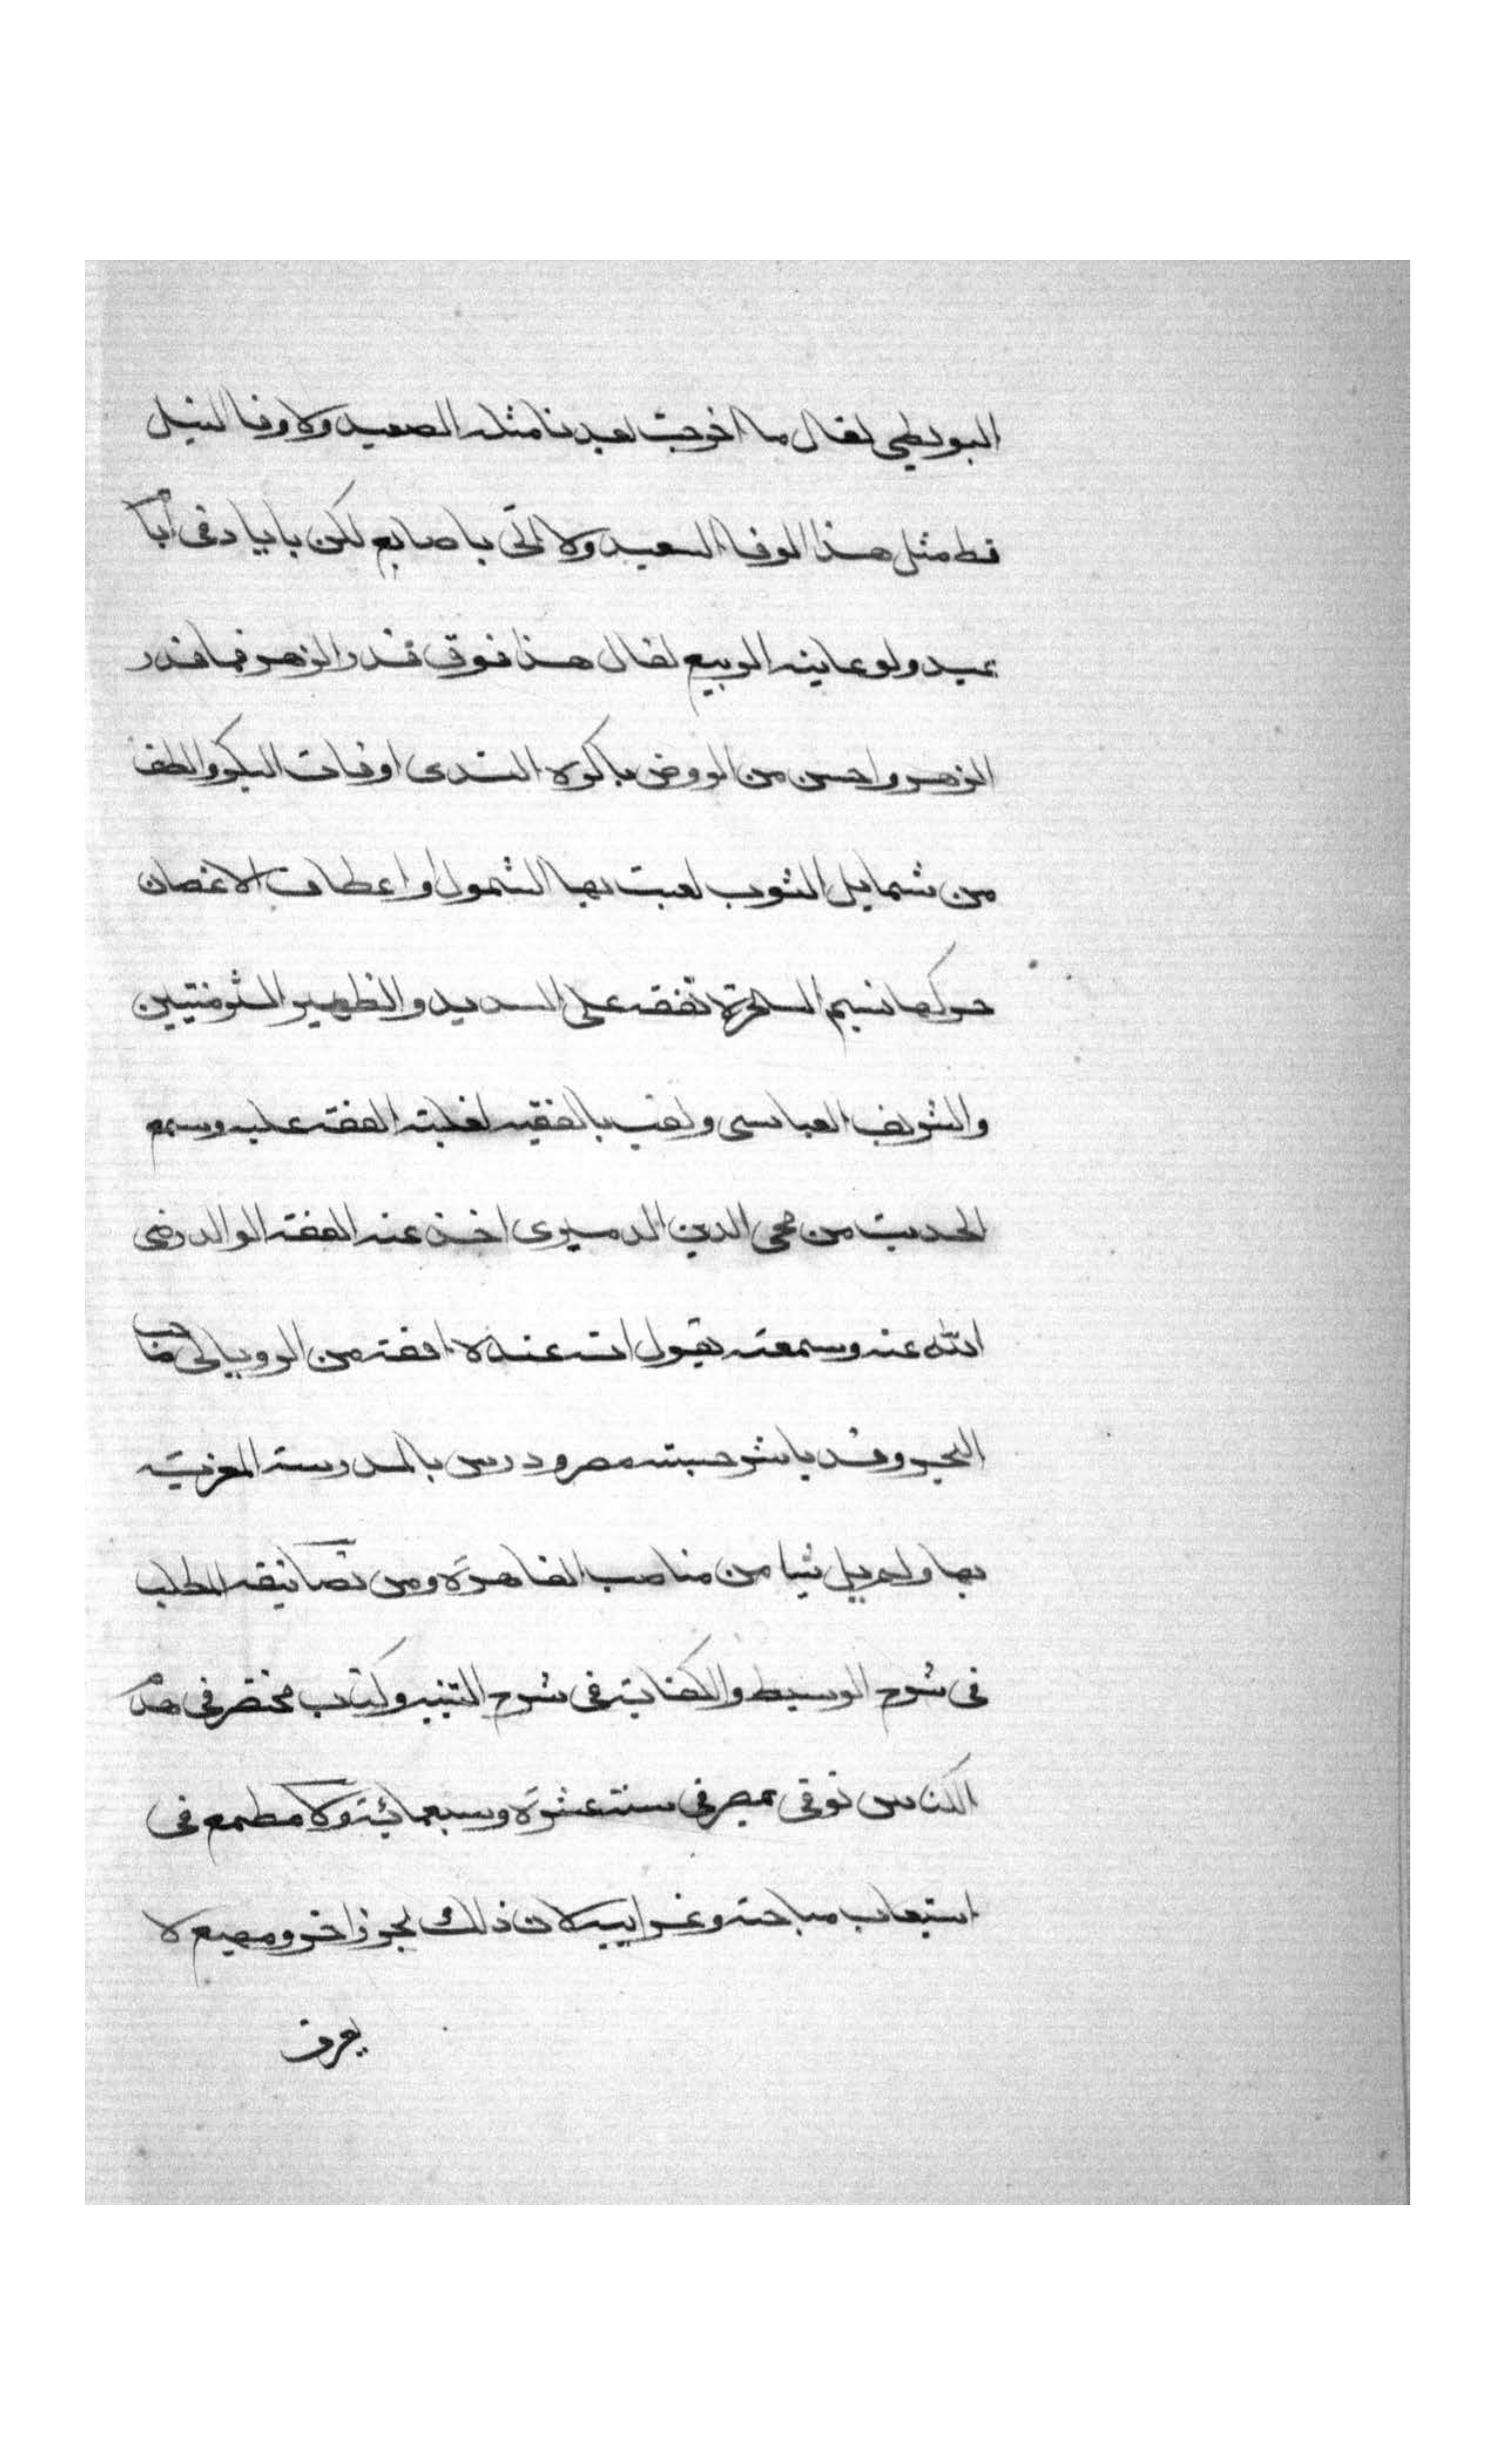 البويطي لقال ما اخرجت بعدنا مثله الصعيد ولا وفا النيل
قط مثل هذا الوفا السعيد ولا اتى باصابع لكن باياد في أيام
عيد ولو عاينه الربيع لقال هذا فوق قدر الزهر فما قدر
الزهر واحسن من الروض باكره الندى اوقات البكر والطف
من شمايل الشرب لعبت بها الشمول او اعطاف الاغصان
حركها نسيم السحر تفقه على السديد والظهير التزمنتيين
والشريف العباسي ولقب بالفقيه لغلبة الفقه عليه وسمع
الحديث من محي الدين الدميري اخذ عنه الفقه الوالد رضي
الله عنه وسمعته يقول انه عنده افقه من الروياني صاحب
البحر وقد باشر حسبة مصر ودرس بالمدرسة المعزية
بها ولم يل شيا من مناصب القاهرة ومن تصانيفه المطلب
في شرح الوسيط والكفاية في شرح التنبيه وكتاب مختصر في هدم
الكنايس توفي بمصر في سنة عشرة وسبعمائة ولا مطمع في
استيعاب مباحثه وغرايبه لان ذلك بحر زاخر ومهيع لا
يعرف